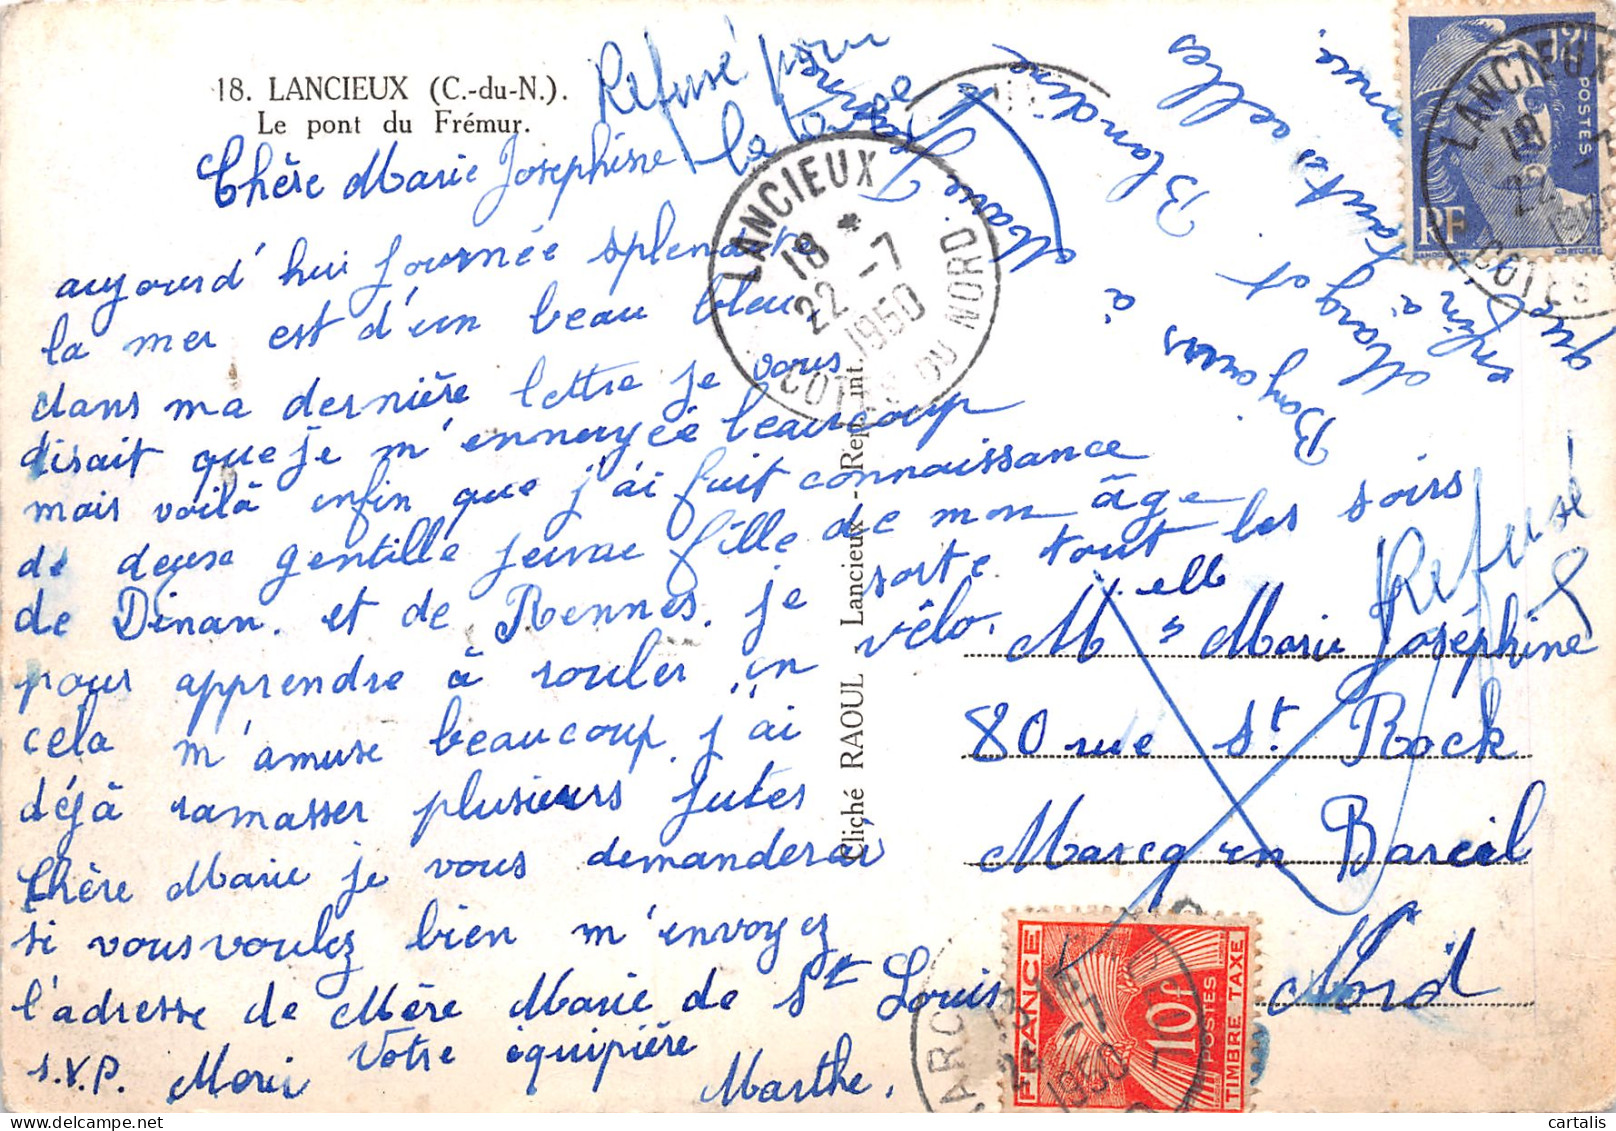 18. LANCIEUX (C.-du-N.).
Le pont du Frémur.
Refusé pour
la taxe
Chère Marie Josephine
aujourd'hui journée splendite
la mer est d'un beau bleu,
dans ma dernière lettre je vous
disait que je m'ennuyée beaucoup
mais voilà enfin que j'ai fait connaissance
de deuse gentille jeune fille de mon âge
de Dinan. et de Rennes. je sorte tout les soirs
pour apprendre à rouler en vélo.
cela m'amuse beaucoup j'ai
déjà ramasser plusieurs jutes
Chère Marie je vous demanderai
si vous voulez bien m'envoyez
l'adresse de Mère Marie de St Louis
s.v.p. Merci Votre équipière
Marthe.
Bonjours à
Marie Thérèse
Blandine
Margot et
enfin à toutes celles
que
LANCIEUX
18 *
22 -7
1950
COTES DU NORD
Cliché RAOUL - Lancieux - Rep. int.
12f
POSTES
RF
GANDON DEL.
CORTOT SC.
LANCIEUX
18
22
COTES
Refusé
Melle Marie Joséphine
80 rue St Rock
Marcq en Bareil
Nord
FRANCE
10f
POSTES
TIMBRE TAXE
MARCQ
-7
1950
cartalis